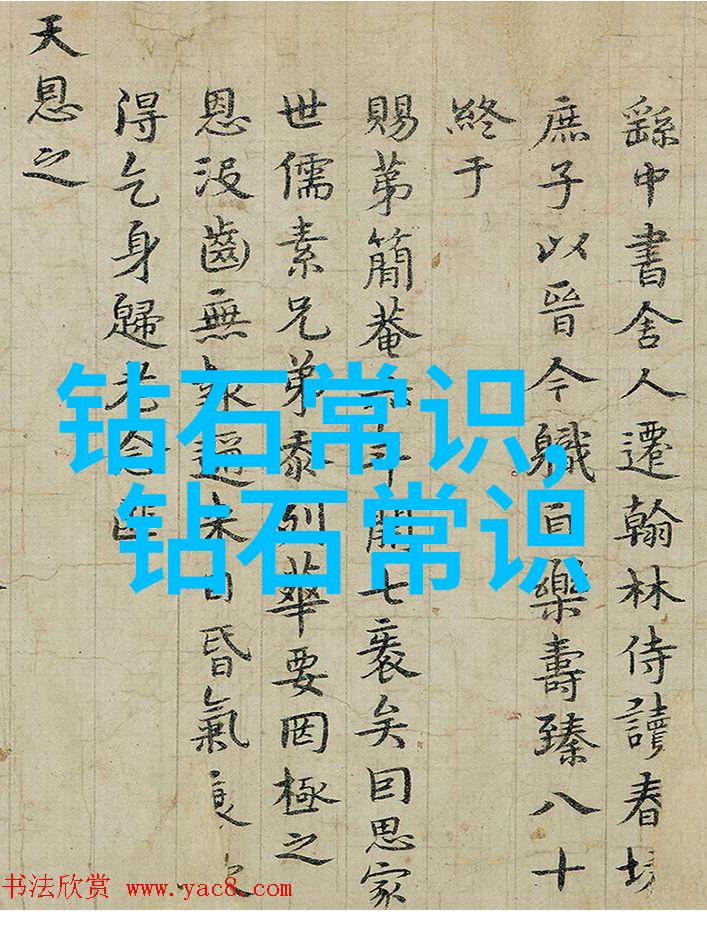 繇中書舍人遷翰林侍讀春坊
庶子以晉今軄樂壽臻八十
終于
賜苐簡菴開七袠矣囙思家
世儒素兄弟忝列華要罔極之
恩沒齒無報來昏氣
得乞身歸老
天恩之
钻石常识,
钻石常识
书法欣赏 www.yac8.com